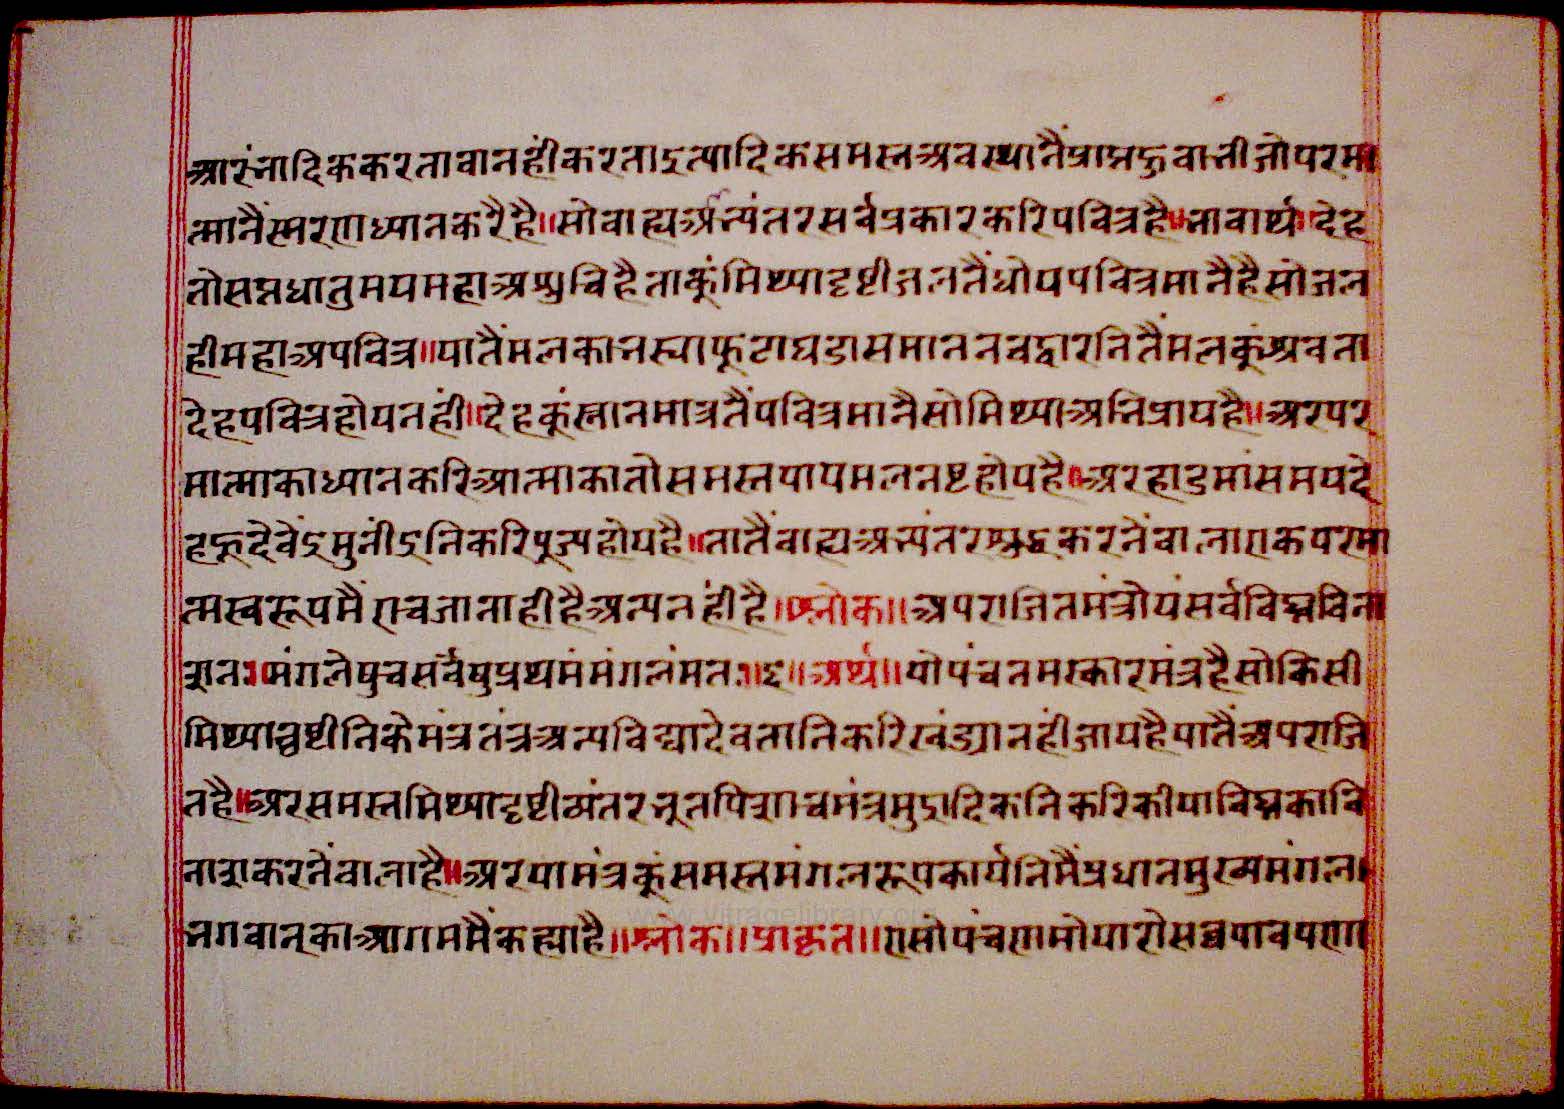 आरंभादिककरतावानहींकरताऽत्यादिकसमस्तअवस्थानैंप्राप्तहुवाभीजोपरमा
त्मानैंस्मरणध्यानकरैहै॥सोवाह्यअभ्यंतरसर्वप्रकारकरिपवित्रहै॥भावार्थ॥देह
तोसप्तधातुमयमहाअशुचिहैताकूंमिथ्यादृष्टीजलतैंधोयपवित्रमानैहैसोजल
हीमहाअपवित्र॥यातैंमलकाभस्याफूटाघडासमाननवद्वारनितैंमलकूंश्रवता
देहपवित्रहोयनहीं॥देहकूंस्नानमात्रतैंपवित्रमानैसोमिथ्याअभिप्रायहै॥अरपर
मात्माकाध्यानकरिआत्माकातोसमस्तपापमलनष्टहोयहै॥अरहाडमांसमयदे
हहूदेवेंऽमुनींऽनिकरिपूज्यहोयहै॥तातैंवाह्यअभ्यंतरशुद्धकरनेंवालाएकपरमा
त्मस्वरूपमैंराचजानाहीहैअन्यनहींहै॥श्लोक॥अपराजितमंत्रोयंसर्वविघ्नविना
शनः॥मंगलेषुचसर्वेषुप्रथमंमंगलंमतः॥३॥अर्थ॥योपंचनमस्कारमंत्रहैसोकिसी
मिथ्यादृष्टीनिकेमंत्रतंत्रअन्यविद्यादेवतानिकरिखंड्यानहींजायहैयातैंअपराजि
तहै॥अरसमस्तमिथ्यादृष्टीव्यंतरभूतपिशाचमंत्रमुद्रादिकनिकरिकीयाविघ्नकावि
नाशकरनेंवालाहै॥अरयामंत्रकूंसमस्तमंगलरूपकार्यनिमैंप्रधानमुख्यमंगल
भगवान्काआगममैंकह्याहै॥श्लोक॥प्राकृत॥एसोपंचणमोयारोसव्वपावपणा
www.vitragelibrary.org